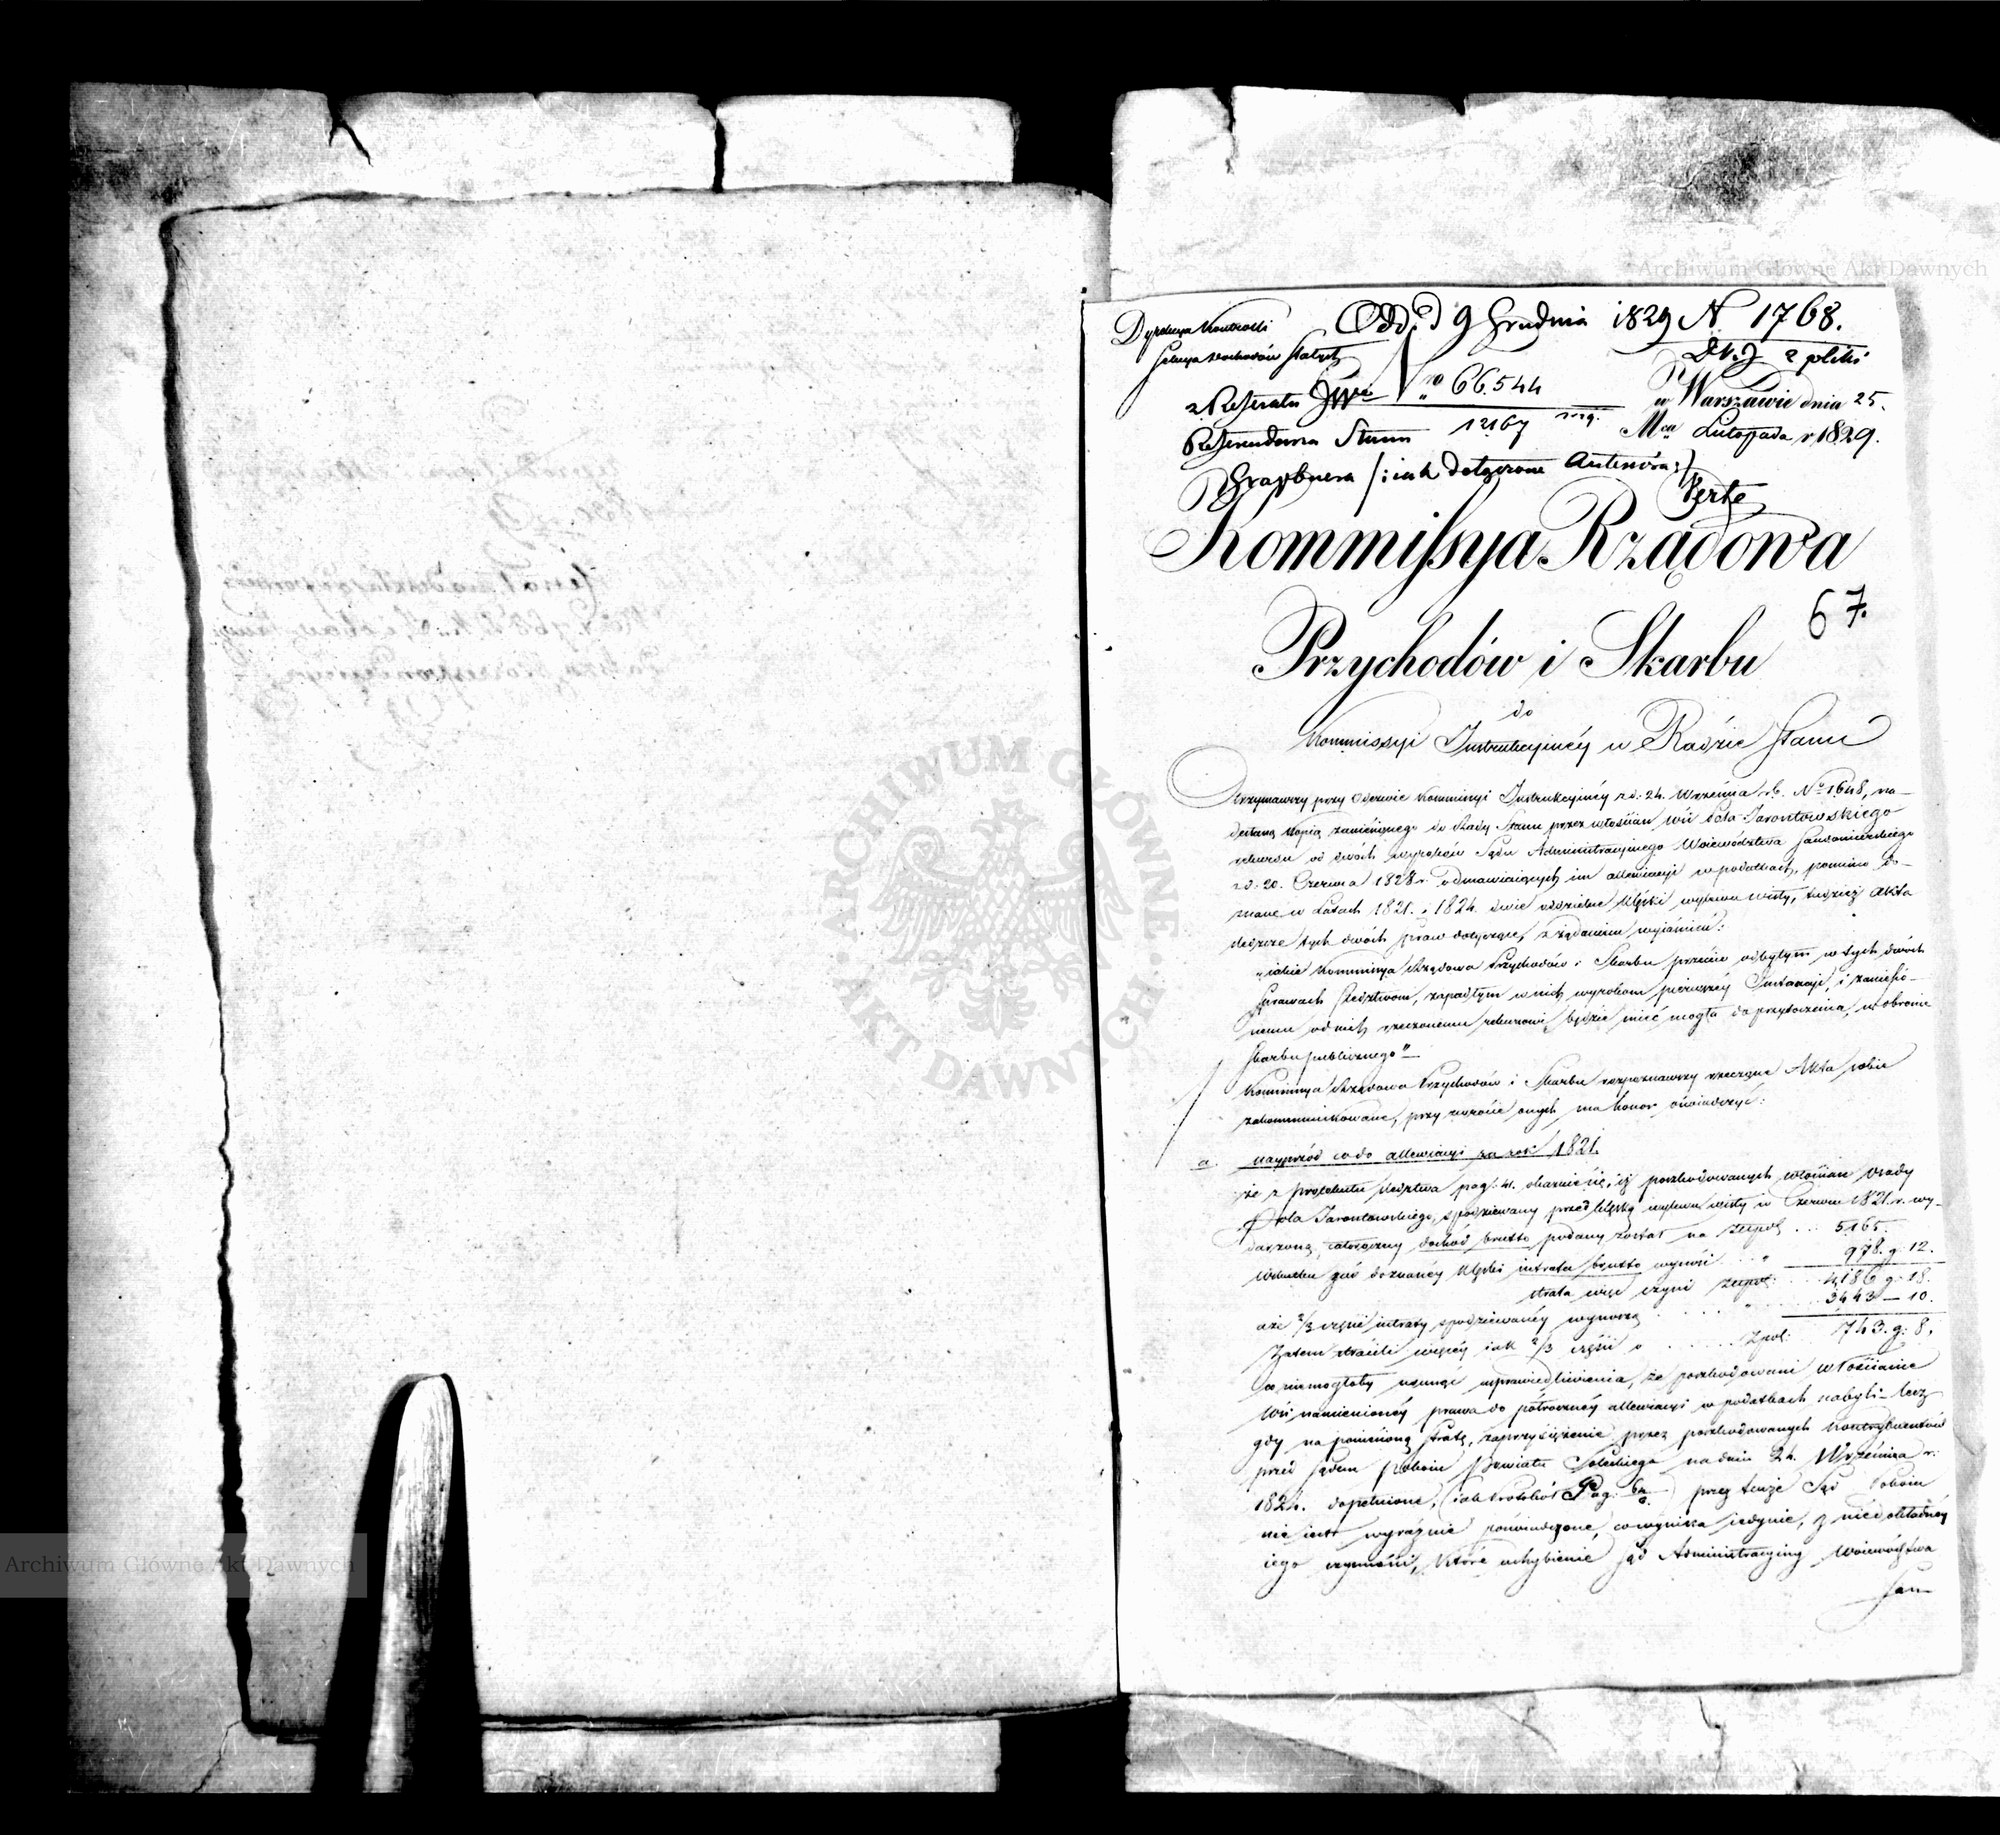 Archiwum Główne Akt Dawnych
Dyrekcya Kontrolli
Odd. d 9 Grudnia 1829 N 1768.
Sekcya Dochodów Stałych
2 pliki
z Referatu JWo
No 66.544
w Warszawie dnia 25.
Referendarza Stanu
12167
Mca Listopada r 1829.
Graybnera /: iak dołączone
Verte
Kommissya Rządowa
67.
Przychodów i Skarbu
do
Kommissyi Instrukcyinéy w Radzie Stanu
Otrzymawszy przy Odezwie Kommissyi Instrukcyinéy z d: 24. Września r.b. No 1648, na-
desłaną kopią zaniesionego do Rady Stanu przez włościan wsi Pola Jarontowskiego
rekursu od dwóch wyroków Sądu Administracyinego Województwa Sandomierskiego
z d: 20. Czerwca 1828 r. odmawiaiących im allewiacyi w podatkach, pomimo do-
znane w Latach 1821. i 1824. dwie oddzielne klęski wylewu wisły, tudzież Akta
śledcze tych dwóch spraw dotyczące, z żądaniem wyjaśnień:
"iakie Kommissya Rządowa Przychodów i Skarbu przeciw odbytym w tych dwóch
sprawach śledztwom, zapadłym w nich wyrokom pierwszéy Instancyi, i zaniesio-
nemu od nich rzeczonemu rekursowi, będzie mieć mogła do przytoczenia, w obronie
Skarbu publicznego"
Kommissya Rządowa Przychodów i Skarbu rozpoznawszy rzeczone Akta sobie
zakommunikowane, przy zwrocie onych ma honor oświadczyć:
a. naypród co do allewiacyi za rok 1821.
że z protokułu śledztwa pag: 41. okazuie się, iż poszkodowanych włościan Osady
Pola Jarontowskiego, spodziewany przed klęską wylewu wisły w Czerwcu 1821. r. wy-
darzoną, całoroczny dochód brutto podany został na Złłpol ... 5165.
Wskutku zaś doznanéy klęski intrata brutto wynosi ... " 978. g. 12.
strata więc czyni Złłpol: ... 4,186 g. 18.
aże 2/3 części intraty spodziewanéy wynoszą ... " ... 3443 — 10.
Zatem stracili więcéy iak 2/3 części o ... Złpol: 743. g: 8,
co niemogłoby ulegać usprawiedliwienia, że poszkodowani włościanie
Wsi namienionéy prawa do półrocznéy allewiacyi w podatkach nabyli – lecz
gdy na ponieśioną stratę, zaprzysiężenie przez poszkodowanych Kontrybuentów
przed Sądem Pokoiu Powiatu Soleckiego na dniu 24. Września r:
1824. dopełnione, (iak Protokół Pag: ) przez tenże Sąd Pokoiu
nie iest wyraźnie poświadczone, co wynika iedynie, z niedokładnéy
iego czynności, które uchybienie Sąd Administracyiny Województwa
San-
ARCHIWUM GŁÓWNE
AKT DAWNYCH
Archiwum Główne Akt Dawnych